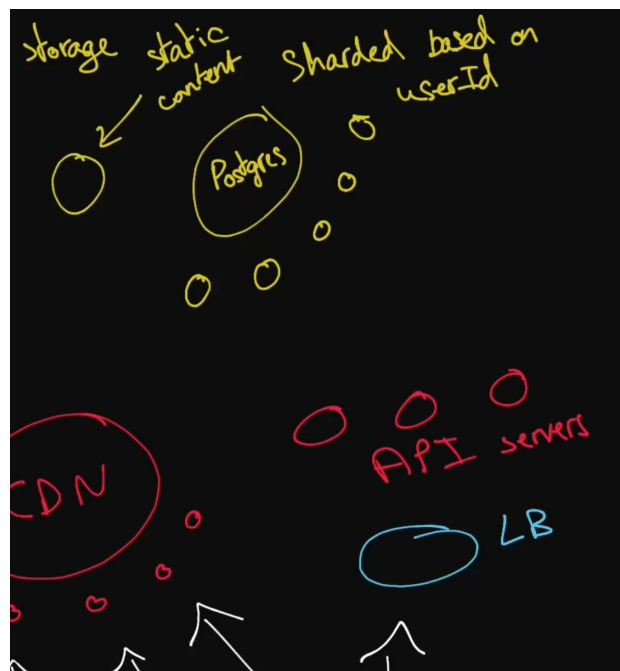 storage
static
content
Sharded based on
userId
Postgres
API servers
CDN
LB